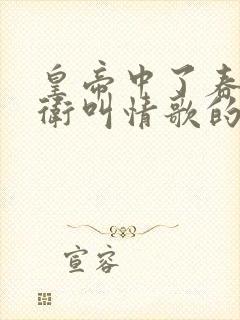 皇帝中了春
衛叫情歌的
宣容